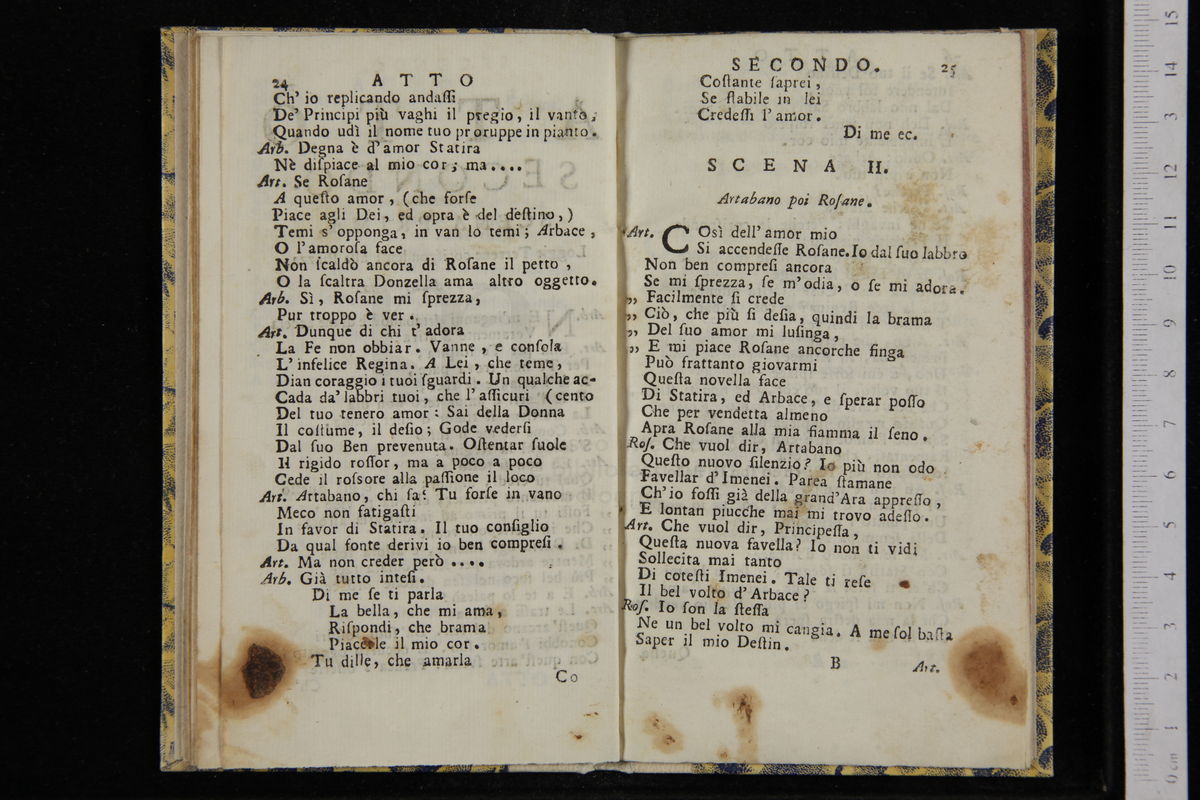 24 ATTO
Ch' io replicando andaſſi
De' Principi più vaghi il pregio, il vanto,
Quando udì il nome tuo proruppe in pianto.
Arb. Degna è d'amor Statira
Nè diſpiace al mio cor; ma....
Art. Se Roſane
A queſto amor, (che forſe
Piace agli Dei, ed opra è del deſtino,)
Temi s'opponga, in van lo temi; Arbace,
O l'amoroſa face
Non ſcaldò ancora di Roſane il petto,
O la ſcaltra Donzella ama altro oggetto.
Arb. Sì, Roſane mi ſprezza,
Pur troppo è ver.
Art. Dunque di chi t'adora
La Fe non obbiar. Vanne, e conſola
L'infelice Regina. A Lei, che teme,
Dian coraggio i tuoi ſguardi. Un qualche ac-
Cada da' labbri tuoi, che l'aſſicuri (cento
Del tuo tenero amor: Sai della Donna
Il coſtume, il deſio; Gode vederſi
Dal ſuo Ben prevenuta. Oſtentar ſuole
Il rigido roſſor, ma a poco a poco
Cede il roſsore alla paſſione il loco
Art. Artabano, chi ſa? Tu forſe in vano
Meco non fatigaſti
In favor di Statira. Il tuo conſiglio
Da qual fonte derivi io ben compreſi.
Art. Ma non creder però ....
Arb. Già tutto inteſi.
Di me ſe ti parla
La bella, che mi ama,
Riſpondi, che brama
Piacerle il mio cor.
Tu dille, che amarla
Co
SECONDO. 25
Coſtante ſaprei,
Se ſtabile in lei
Credeſſi l'amor.
Di me ec.
SCENA II.
Artabano poi Roſane.
Art. COsì dell'amor mio
Si accendeſſe Roſane. Io dal ſuo labbro
Non ben compreſi ancora
Se mi ſprezza, ſe m'odia, o ſe mi adora.
„ Facilmente ſi crede
„ Ciò, che più ſi deſia, quindi la brama
„ Del ſuo amor mi luſinga,
„ E mi piace Roſane ancorche finga
Può frattanto giovarmi
Queſta novella face
Di Statira, ed Arbace, e ſperar poſſo
Che per vendetta almeno
Apra Roſane alla mia fiamma il ſeno.
Roſ. Che vuol dir, Artabano
Queſto nuovo ſilenzio? Io più non odo
Favellar d'Imenei. Parea ſtamane
Ch'io foſſi già della grand'Ara appreſſo,
E lontan piucche mai mi trovo adeſſo.
Art. Che vuol dir, Principeſſa,
Queſta nuova favella? Io non ti vidi
Sollecita mai tanto
Di coteſti Imenei. Tale ti reſe
Il bel volto d'Arbace?
Roſ. Io ſon la ſteſſa
Ne un bel volto mi cangia. A me ſol baſta
Saper il mio Deſtin.
B Art.